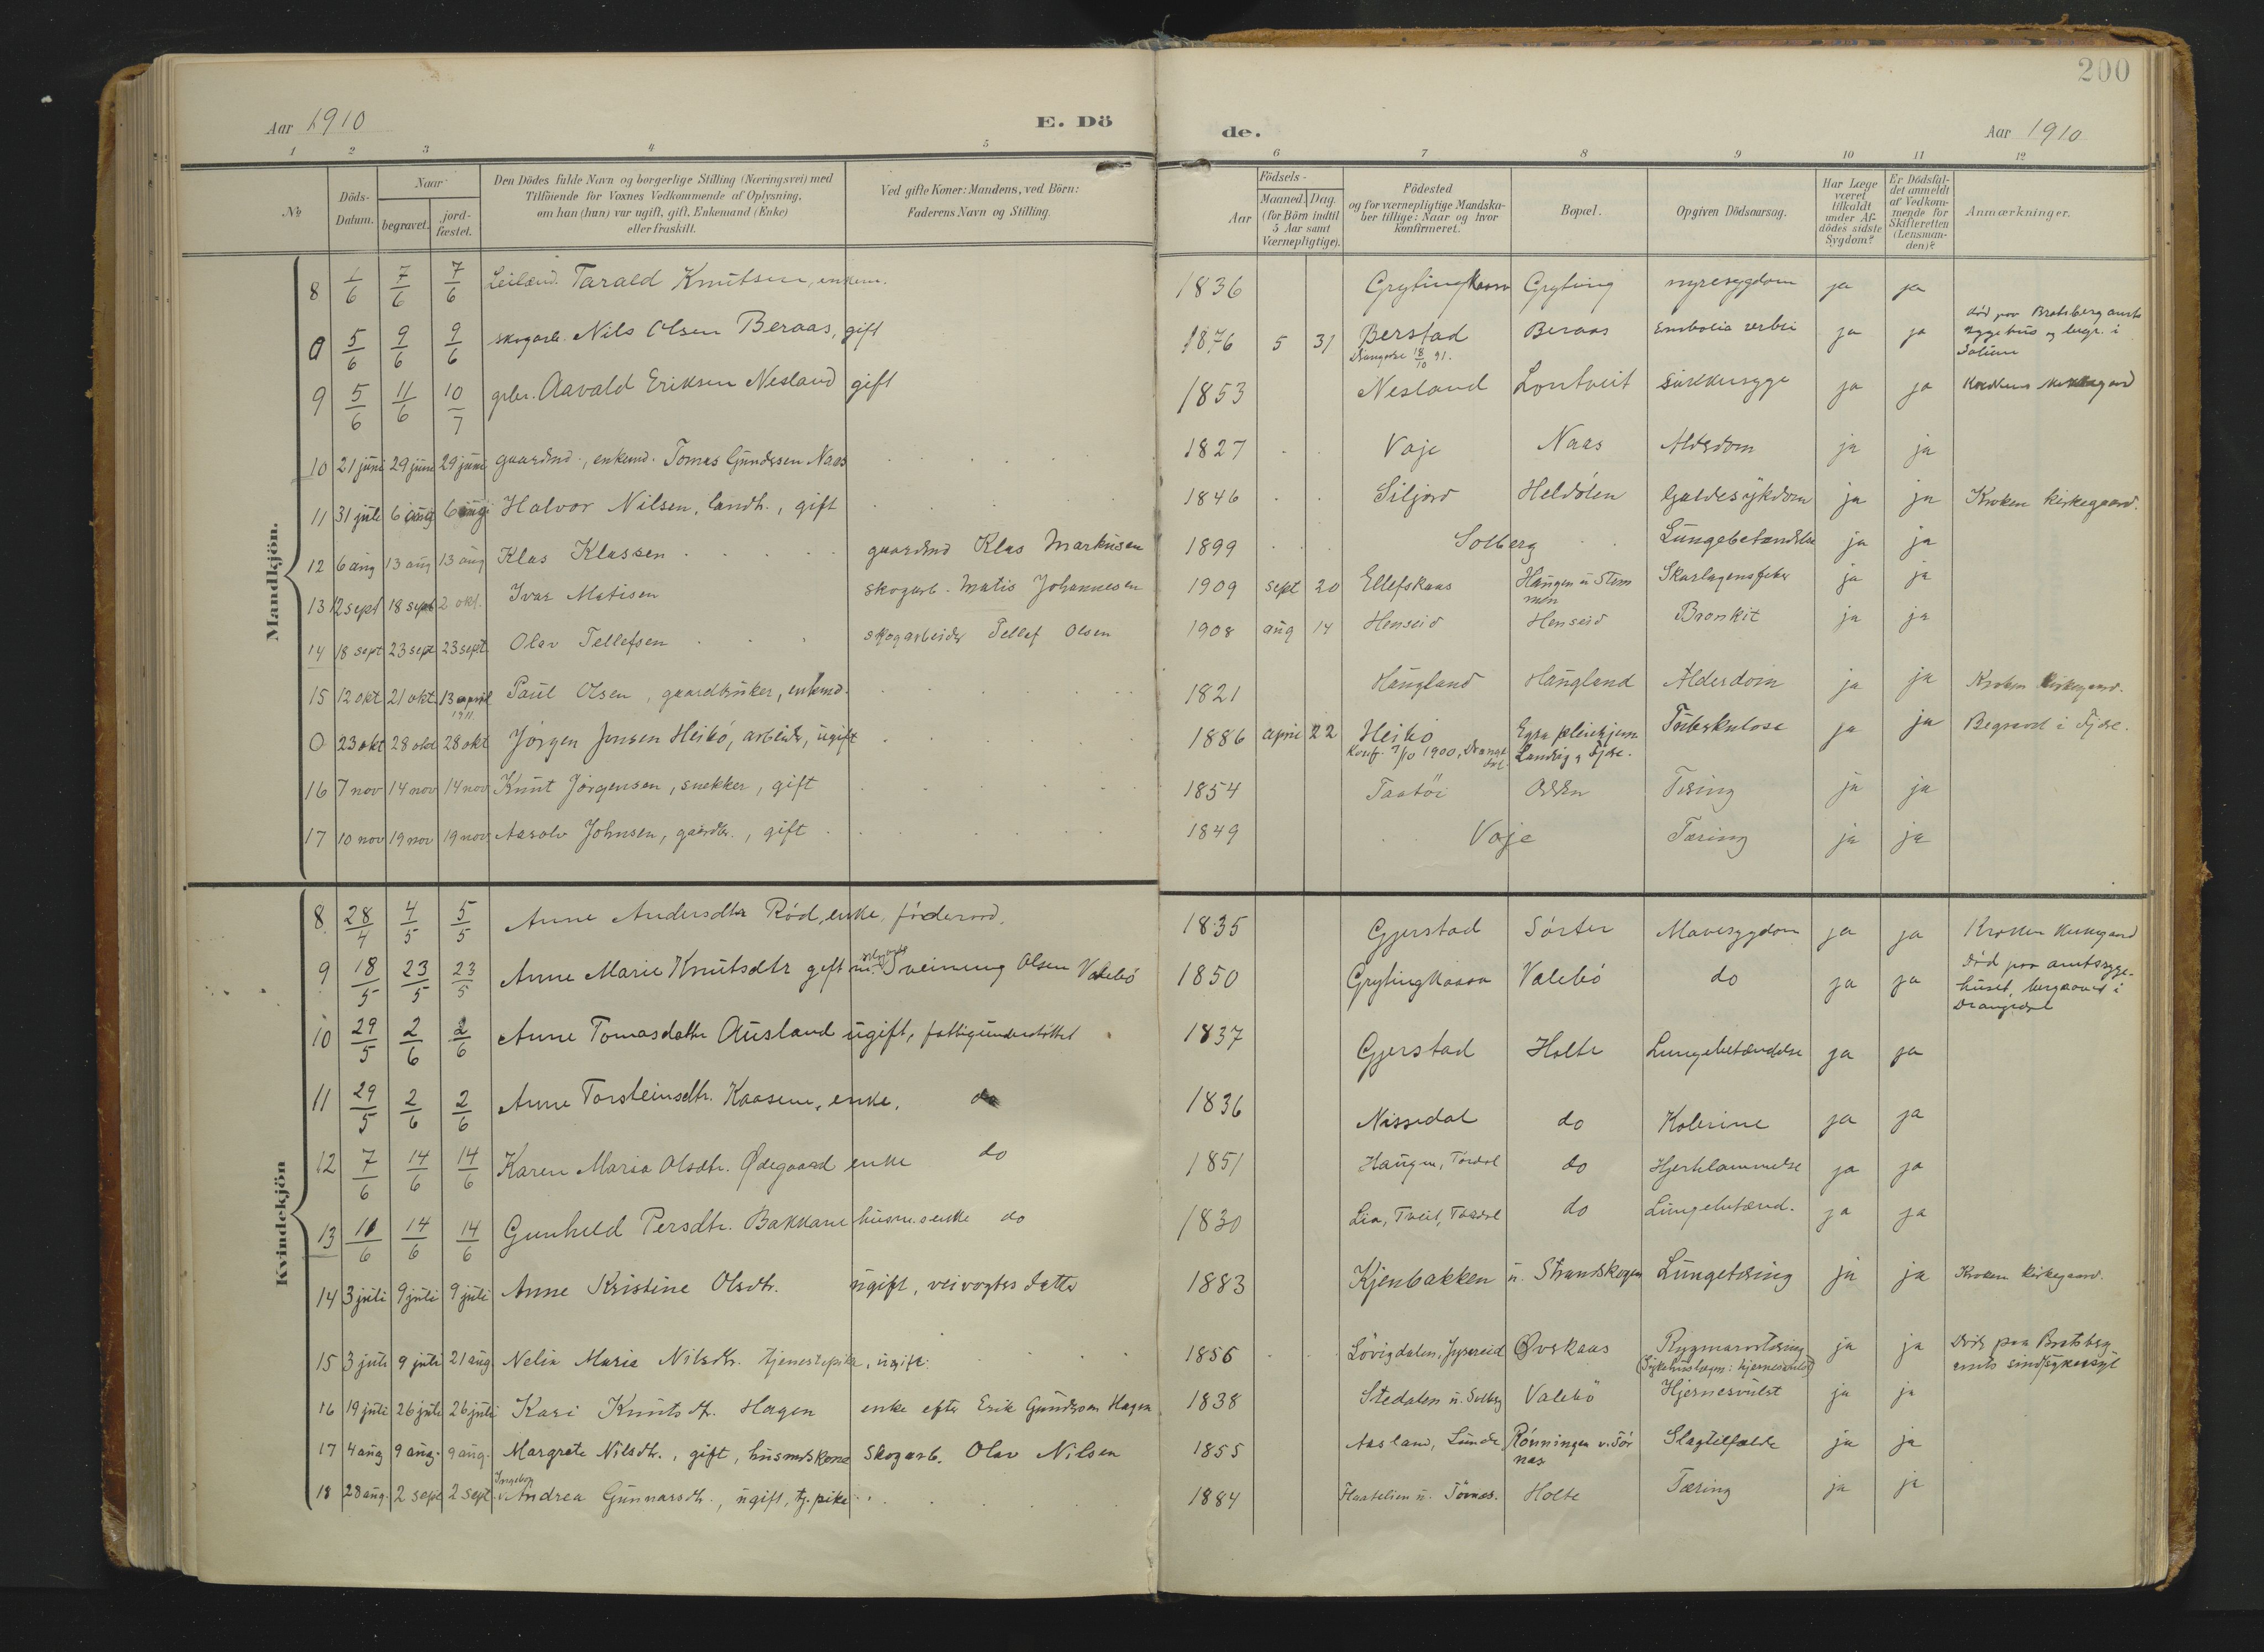 200
Aar 1910 E. Dö de. Aar 1910
1 2 3 4 5 6 7 8 9 10 11 12
№
Döds-Datum.
Naar
begravet.
jord-fæstet.
Den Dödes fulde Navn og borgerlige Stilling (Næringsvei) med
Tilföiende for Voxnes Vedkommende af Oplysning,
om han (hun) var ugift, gift, Enkemand (Enke)
eller fraskilt.
Ved gifte Koner: Mandens, ved Börn:
Faderens Navn og Stilling.
Födsels-
Aar
Maaned. Dag.
(for Börn indtil
5 Aar samt
Værnepligtige).
Födested
og for værnepligtige Mandska-
ber tillige: Naar og hvor
konfirmeret.
Bopæl.
Opgiven Dödsaarsag.
Har Læge
været
tilkaldt
under Af-
dödes sidste
Sygdom?
Er Dödsfal-
det anmeldt
af Vedkom-
mende for
Skifteretten
(Lensman-
den)?
Anmærkninger.
Mandkjön.
8 1/6 7/6 7/6 Leilænd. Tarald Knutsen, enkem. 1836 Grytingkaasa Gryting nyresygdom ja ja
0 5/6 9/6 9/6 skogarb. Nils Olsen Beraas, gift 1876 5 31 Berstad Drangedal 18/10 91. Beraas Embolia cerebri ja ja död paa Bratsberg amts sygehus og begr. i Solum
9 5/6 11/6 10/7 grbr. Aavald Eriksen Nesland gift 1853 Nesland Lontveit Sukkersyge ja ja Krokens kirkegaard
10 21 juni 29 juni 29 juni gaardmd., enkemd. Tomas Gundersen Naas 1827 Vaje Naas Alderdom ja ja
11 31 juli 6 aug 6 aug Halvor Nilsen, landh., gift 1846 Siljord Heldölen Galdesykdom ja ja Kroken kirkegaard.
12 6 aug 13 aug 13 aug Klas Klassen gaardmd Klas Markusen 1899 Solberg Lungebetændelse ja ja
13 12 sept 18 sept 2 okt. Ivar Matisen skogarb. Matis Johannesen 1909 sept 20 Ellefskaas Haugen u Stemmen Skarlagensfeber ja ja
14 18 sept 23 sept 23 sept Olav Tellefsen skogarbeider Tellef Olsen 1908 aug 14 Henseid Henseid Bronkit ja ja
15 12 okt 21 okt 13 april 1911 Paul Olsen, gaardbruker, enkemd. 1821 Haugland Haugland Alderdom ja ja Kroken kirkegaard.
0 23 okt 28 okt 28 okt Jörgen Jensen Heibö, arbeider, ugift 1886 april 22 Heibö Konf. 7/10 1900, Drangedal Egra pleiehjem Landvig, Fjære. Tuberkulose ja ja Begravd i Fjære.
16 7 nov 14 nov 14 nov Knut Jörgensen, snekker, gift 1854 Taatöi Odden Tæring ja ja
17 10 nov 19 nov 19 nov Aasolv Johnsen, gaardbr., gift 1849 Vaje Tæring ja ja
Kvindekjön
8 28/4 4/5 5/5 Anne Andersdtr Röd, enke, föderaad. 1835 Gjerstad Sörter Mavesygdom ja ja Kroken kirkegaard
9 18/5 23/5 23/5 Anne Marie Knutsdtr gift m. Sveinung Olsen Valebö 1850 Grytingkaasa Valebö do ja ja Död paa amtssyge-huset, begravet i Drangedal
10 29/5 2/6 2/6 Anne Tomasdatter Ausland ugift, fattigunderstöttet 1837 Gjerstad Holte Lungebetændelse ja ja
11 29/5 2/6 2/6 Anne Torsteinsdtr. Kaasene, enke, do 1836 Nissedal do Kolerine ja ja
12 7/6 14/6 14/6 Karen Maria Olsdtr. Ødegaard enke do 1851 Haugen, Tördal do Hjertelammelse ja ja
13 11/6 14/6 14/6 Gunhild Persdtr. Bakkane husm.enke do 1830 Lia, Tveit, Tördal do Lungebetænd. ja ja
14 3 juli 9 juli 9 juli Anne Kristine Olsdtr. ugift, veivogters datter 1883 Kjenbakken u. Strandskogen Lungetæring ja ja Kroken kirkegaard.
15 3 juli 9 juli 21 aug Nelia Maria Nilsdtr. tjenestepike, ugift. 1856 Lövigdalen, Jyrereid Øvskaas Rygmarvstæring (Sykehuslægen: hjernesvulst) ja ja Död paa Bratsberg amts sindsykeasyl
16 19 juli 26 juli 26 juli Kari Knutsdtr. Hagen enke efter Erik Gundersen Hagen 1838 Stedalen u. Solberg Valebö Hjernesvulst ja ja
17 4 aug 9 aug. 9 aug. Margrete Nilsdtr., gift, husmdskone Skogarb. Olav Nilsen 1855 Aasland, Lunde Rönningen v. Törnes Slagtilfælde ja ja
18 28 aug. 2 sept 2 sept. Ingeborg Andrea Gunnarsdtr., ugift, tj.pike 1884 Flaatelien u. Törnes. Holte Tæring ja ja